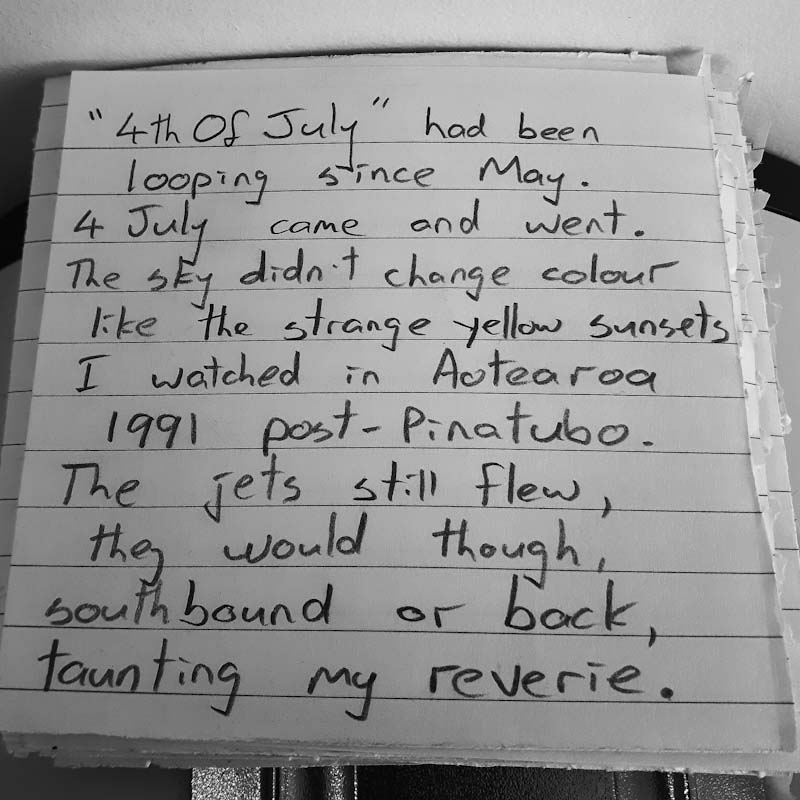 "4th Of July" had been
looping since May.
4 July came and went.
The sky didn't change colour
like the strange yellow sunsets
I watched in Aotearoa
1991 post-Pinatubo.
The jets still flew,
they would though,
southbound or back,
taunting my reverie.